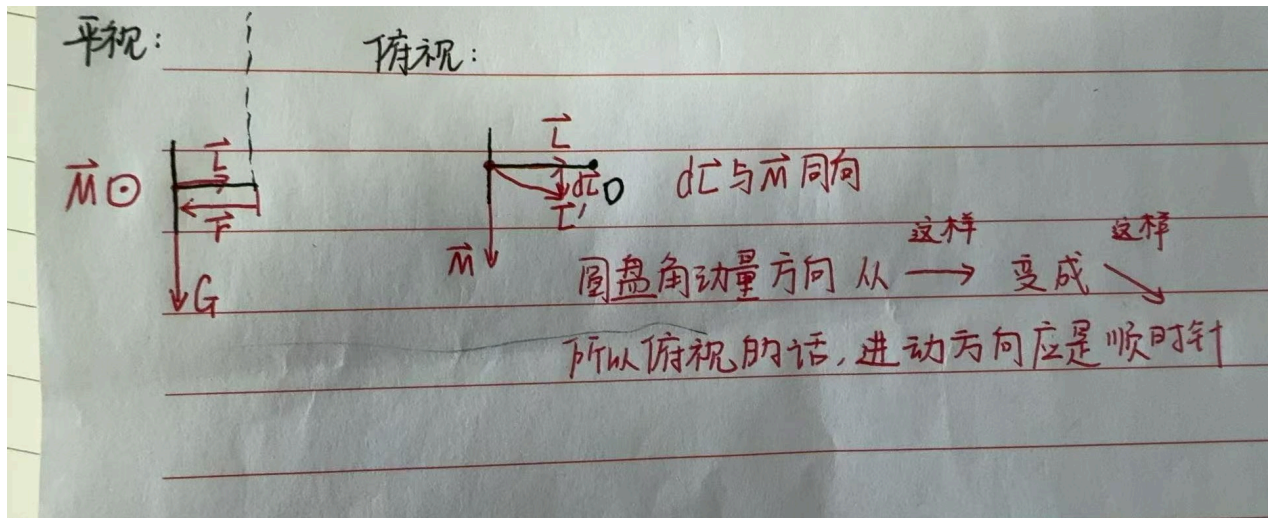 平视：
俯视：
M⃗⊙
L⃗
r⃗
G
L⃗
dL⃗
O
L⃗′
M⃗
dL⃗与M⃗同向
这样 这样
圆盘角动量方向从 → 变成 ↘
所以俯视的话，进动方向应是顺时针